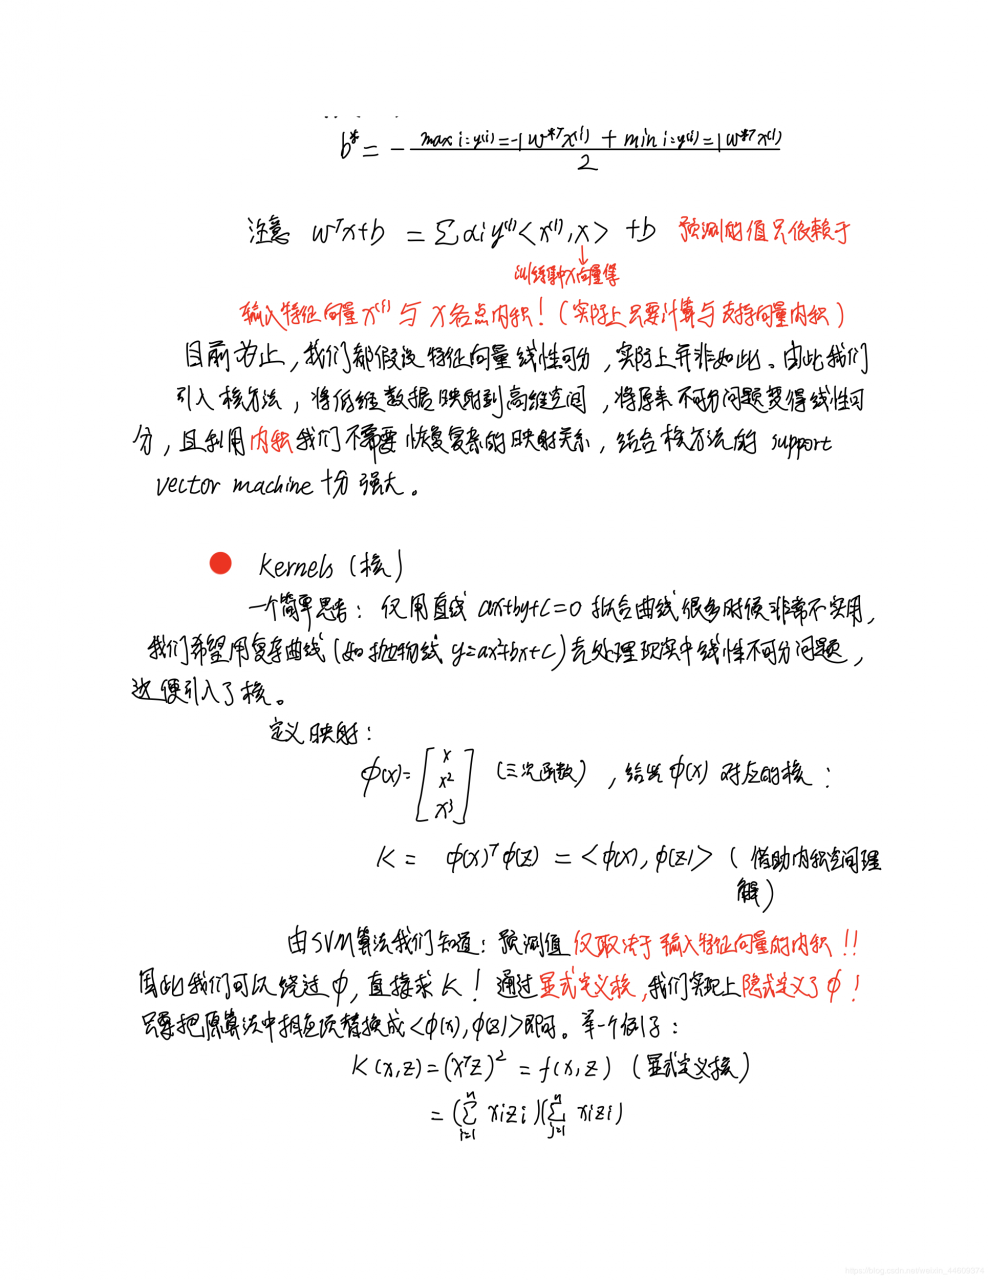 b* = - (max i:y(i)=-1 w*ᵀx(i) + min i:y(i)=1 w*ᵀx(i)) / 2
注意 wᵀx+b = ∑αi y(i)<x(i),x> +b 预测的值只依赖于
训练集中x向量集
输入特征向量x(i)与x各点内积!(实际上只要计算与支持向量内积)
目前为止,我们都假设特征向量线性可分,实际上并非如此。由此我们
引入核方法,将低维数据映射到高维空间,将原来不可分问题变得线性可
分,且利用内积我们不需要恢复复杂的映射关系,结合核方法的 support
vector machine 十分强大。
Kernels(核)
一个简单思考:仅用直线 ax+by+c=0 拟合曲线很多时候非常不实用,
我们希望用复杂曲线(如抛物线 y=ax²+bx+c)去处理现实中线性不可分问题,
这便引入了核。
定义映射:
φ(x)= [x x² x³] (三次函数),给出φ(x)对应的核:
K = φ(x)ᵀφ(z) = <φ(x),φ(z)> (借助内积空间理
解)
由SVM算法我们知道:预测值仅取决于输入特征向量的内积!!
因此我们可以绕过φ,直接求K!通过显式定义核,我们实际上隐式定义了φ!
只要把原算法中相应项替换成<φ(x),φ(z)>即可。举一个例子:
K(x,z)=(xᵀz)² = f(x,z) (显式定义核)
= (∑ⁿi=1 xizi)(∑ⁿj=1 xizi)